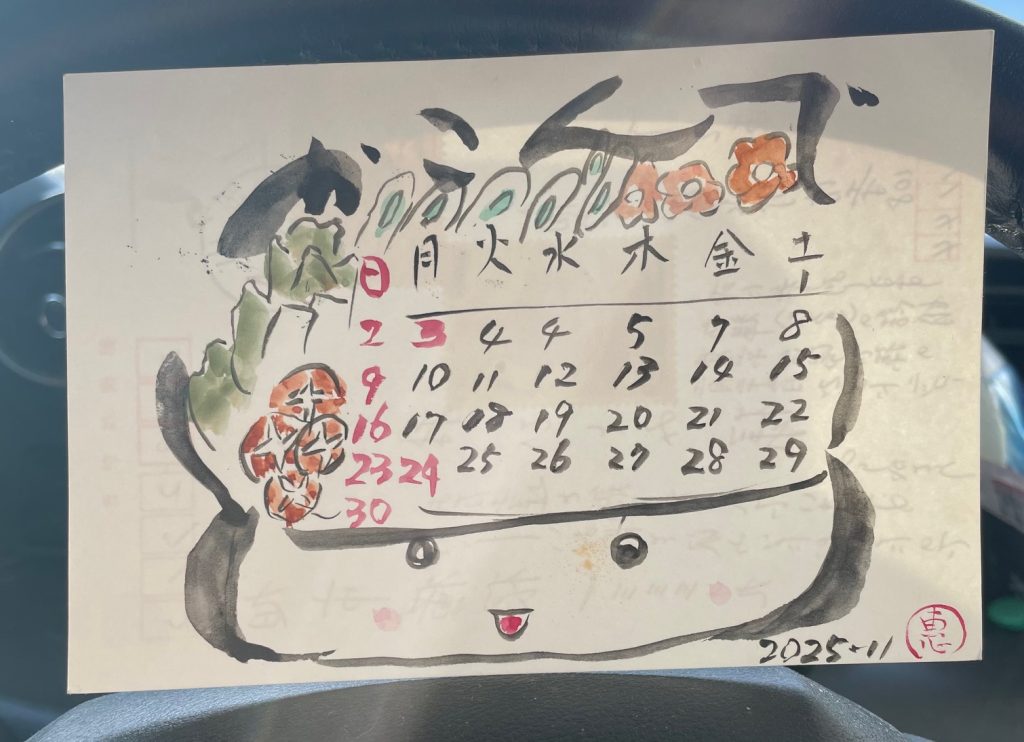 日 月 火 水 木 金 土
1
2 3 4 4 5 7 8
9 10 11 12 13 14 15
16 17 18 19 20 21 22
23 24 25 26 27 28 29
30
2025-11
恵